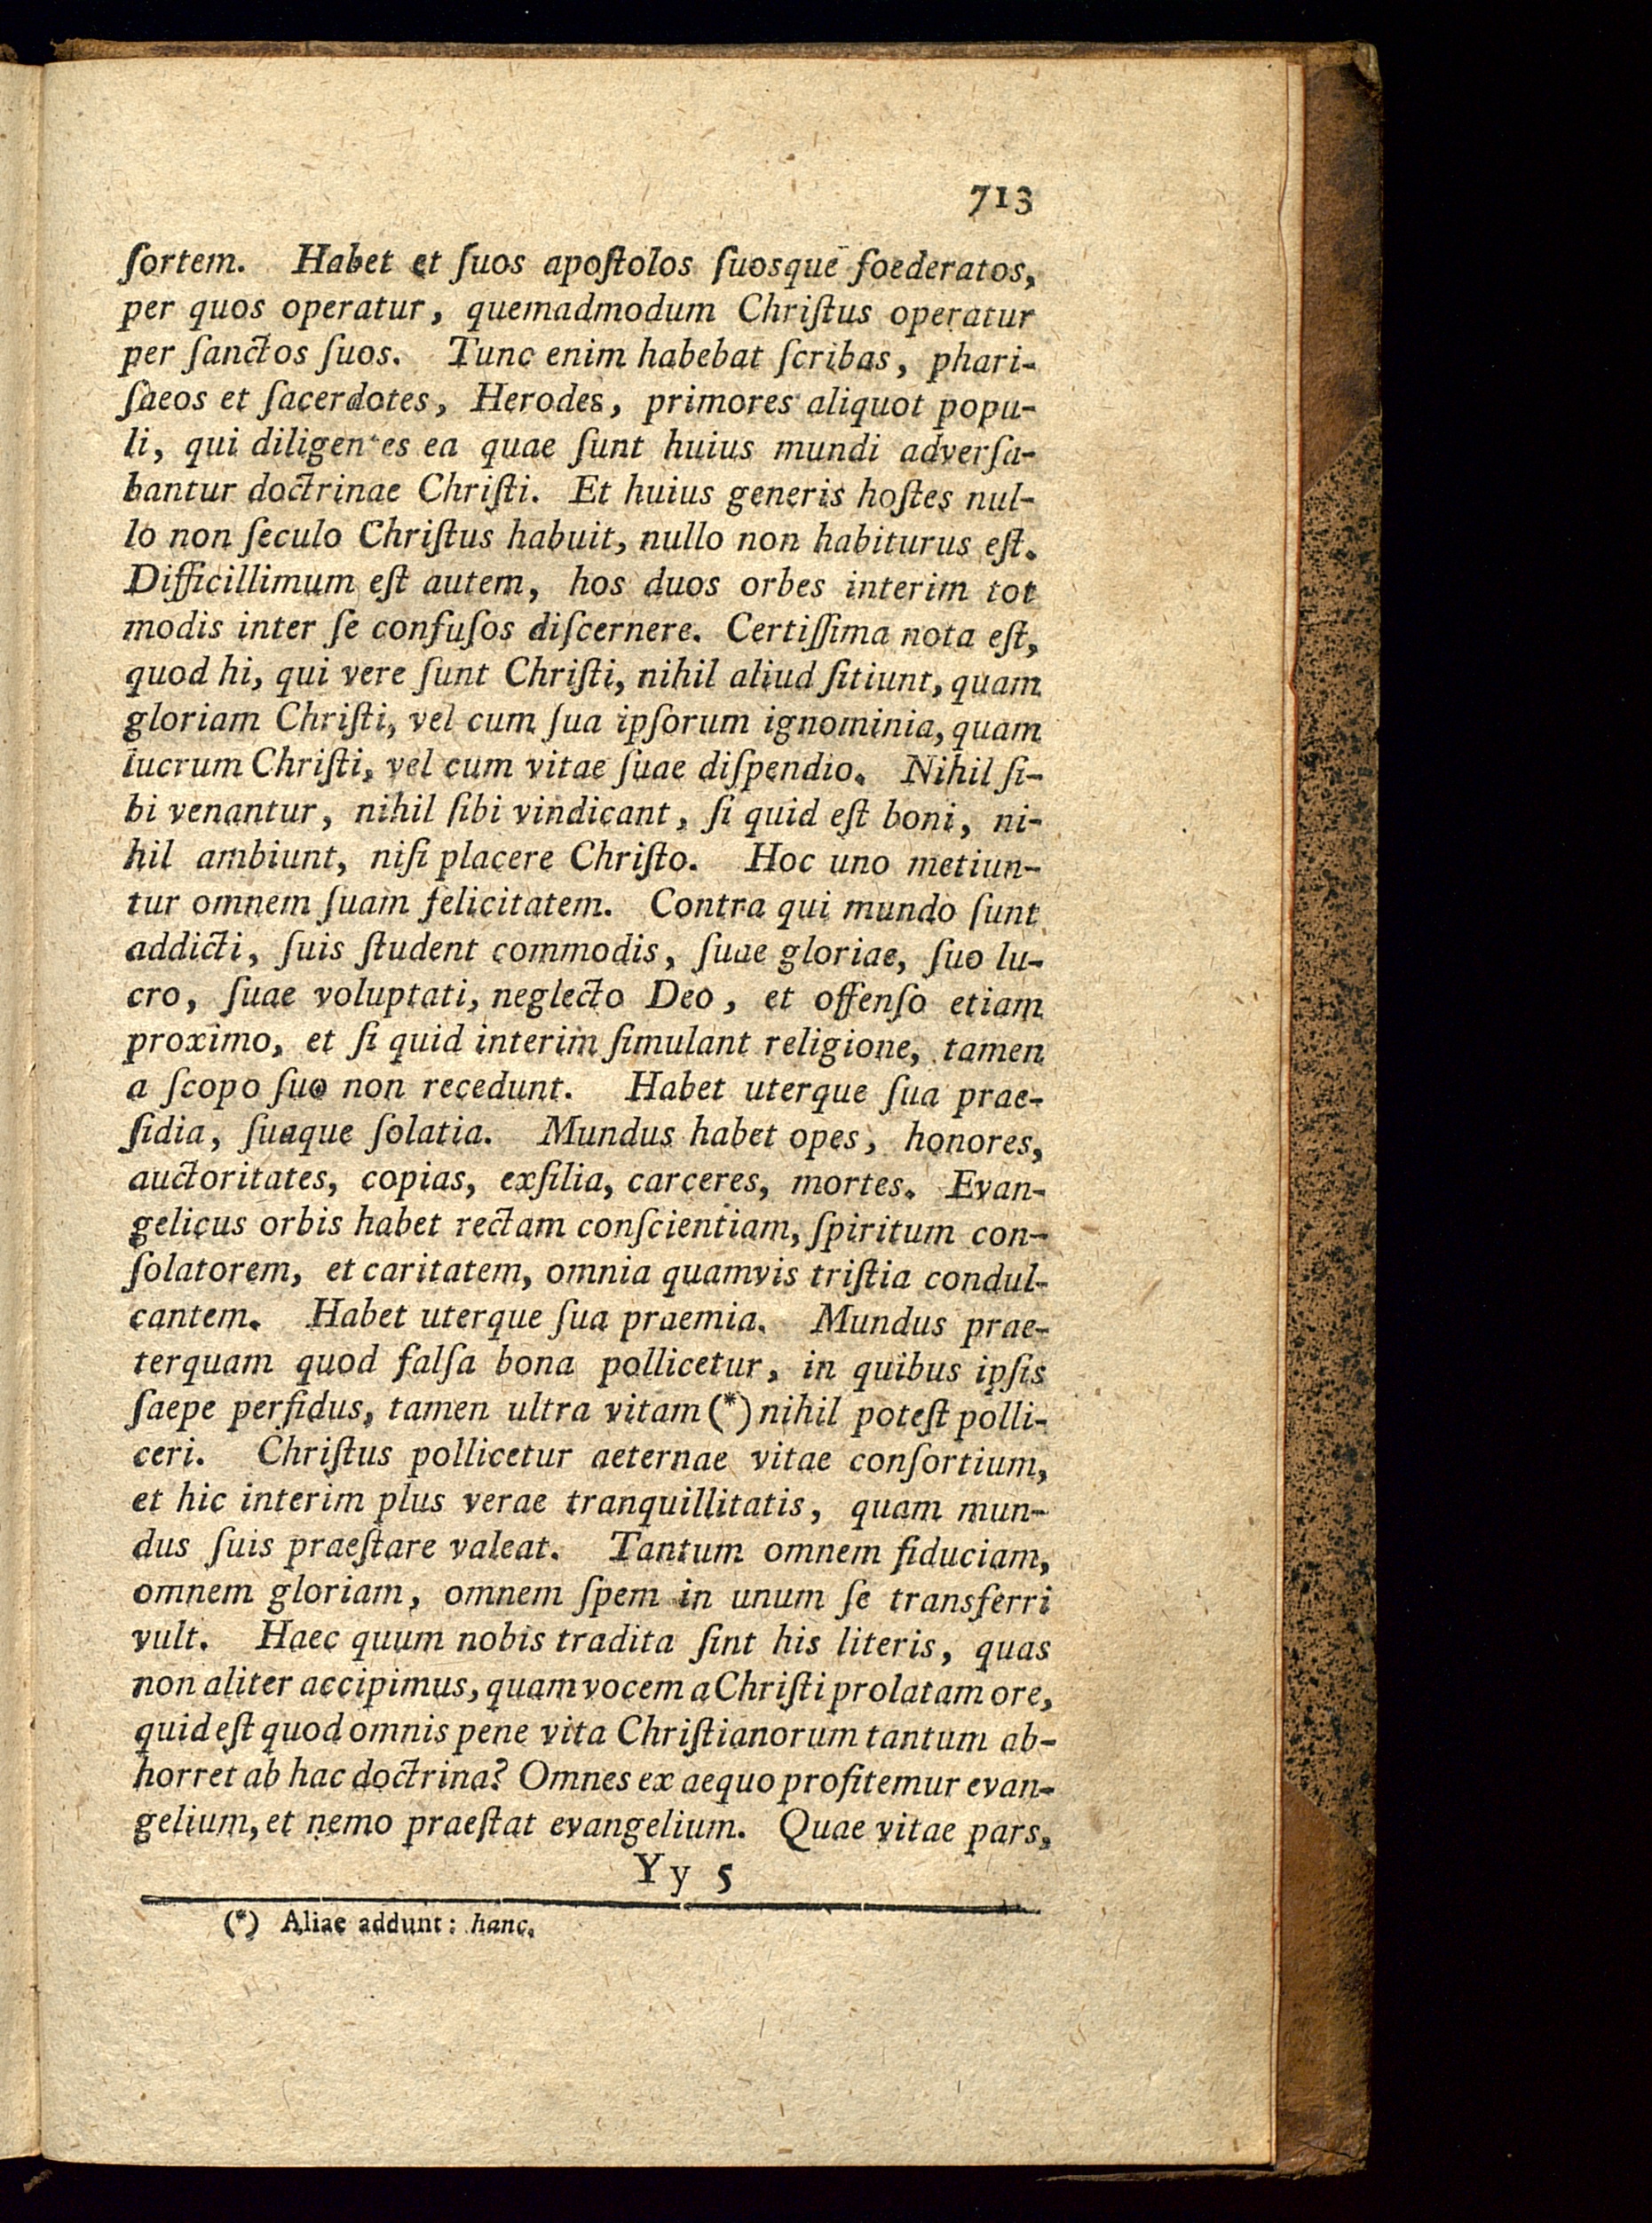 713
ſortem. Habet et ſuos apoſtolos ſuosque foederatos,
per quos operatur, quemadmodum Chriſtus operatur
per ſanctos ſuos. Tunc enim habebat ſcribas, phari-
ſaeos et ſacerdotes, Herodes, primores aliquot popu-
li, qui diligentes ea quae ſunt huius mundi adverſa-
bantur doctrinae Chriſti. Et huius generis hoſtes nul-
lo non ſeculo Chriſtus habuit, nullo non habiturus eſt.
Difficillimum eſt autem, hos duos orbes interim tot
modis inter ſe confuſos diſcernere. Certiſſima nota eſt,
quod hi, qui vere ſunt Chriſti, nihil aliud ſitiunt, quam
gloriam Chriſti, vel cum ſua ipſorum ignominia, quam
lucrum Chriſti, vel cum vitae ſuae diſpendio. Nihil ſi-
bi venantur, nihil ſibi vindicant, ſi quid eſt boni, ni-
hil ambiunt, niſi placere Chriſto. Hoc uno metiun-
tur omnem ſuam felicitatem. Contra qui mundo ſunt
addicti, ſuis ſtudent commodis, ſuae gloriae, ſuo lu-
cro, ſuae voluptati, neglecto Deo, et offenſo etiam
proximo, et ſi quid interim ſimulant religione, tamen
a ſcopo ſuo non recedunt. Habet uterque ſua prae-
ſidia, ſuaque ſolatia. Mundus habet opes, honores,
auctoritates, copias, exſilia, carceres, mortes. Evan-
gelicus orbis habet rectam conſcientiam, ſpiritum con-
ſolatorem, et caritatem, omnia quamvis triſtia condul-
cantem. Habet uterque ſua praemia. Mundus prae-
terquam quod falſa bona pollicetur, in quibus ipſis
ſaepe perfidus, tamen ultra vitam (*) nihil poteſt polli-
ceri. Chriſtus pollicetur aeternae vitae conſortium,
et hic interim plus verae tranquillitatis, quam mun-
dus ſuis praeſtare valeat. Tantum omnem fiduciam,
omnem gloriam, omnem ſpem in unum ſe transferri
vult. Haec quum nobis tradita ſint his literis, quas
non aliter accipimus, quam vocem a Chriſti prolatam ore,
quid eſt quod omnis pene vita Chriſtianorum tantum ab-
horret ab hac doctrina? Omnes ex aequo profitemur evan-
gelium, et nemo praeſtat evangelium. Quae vitae pars,
Yy 5
(*) Aliae addunt: hanc.